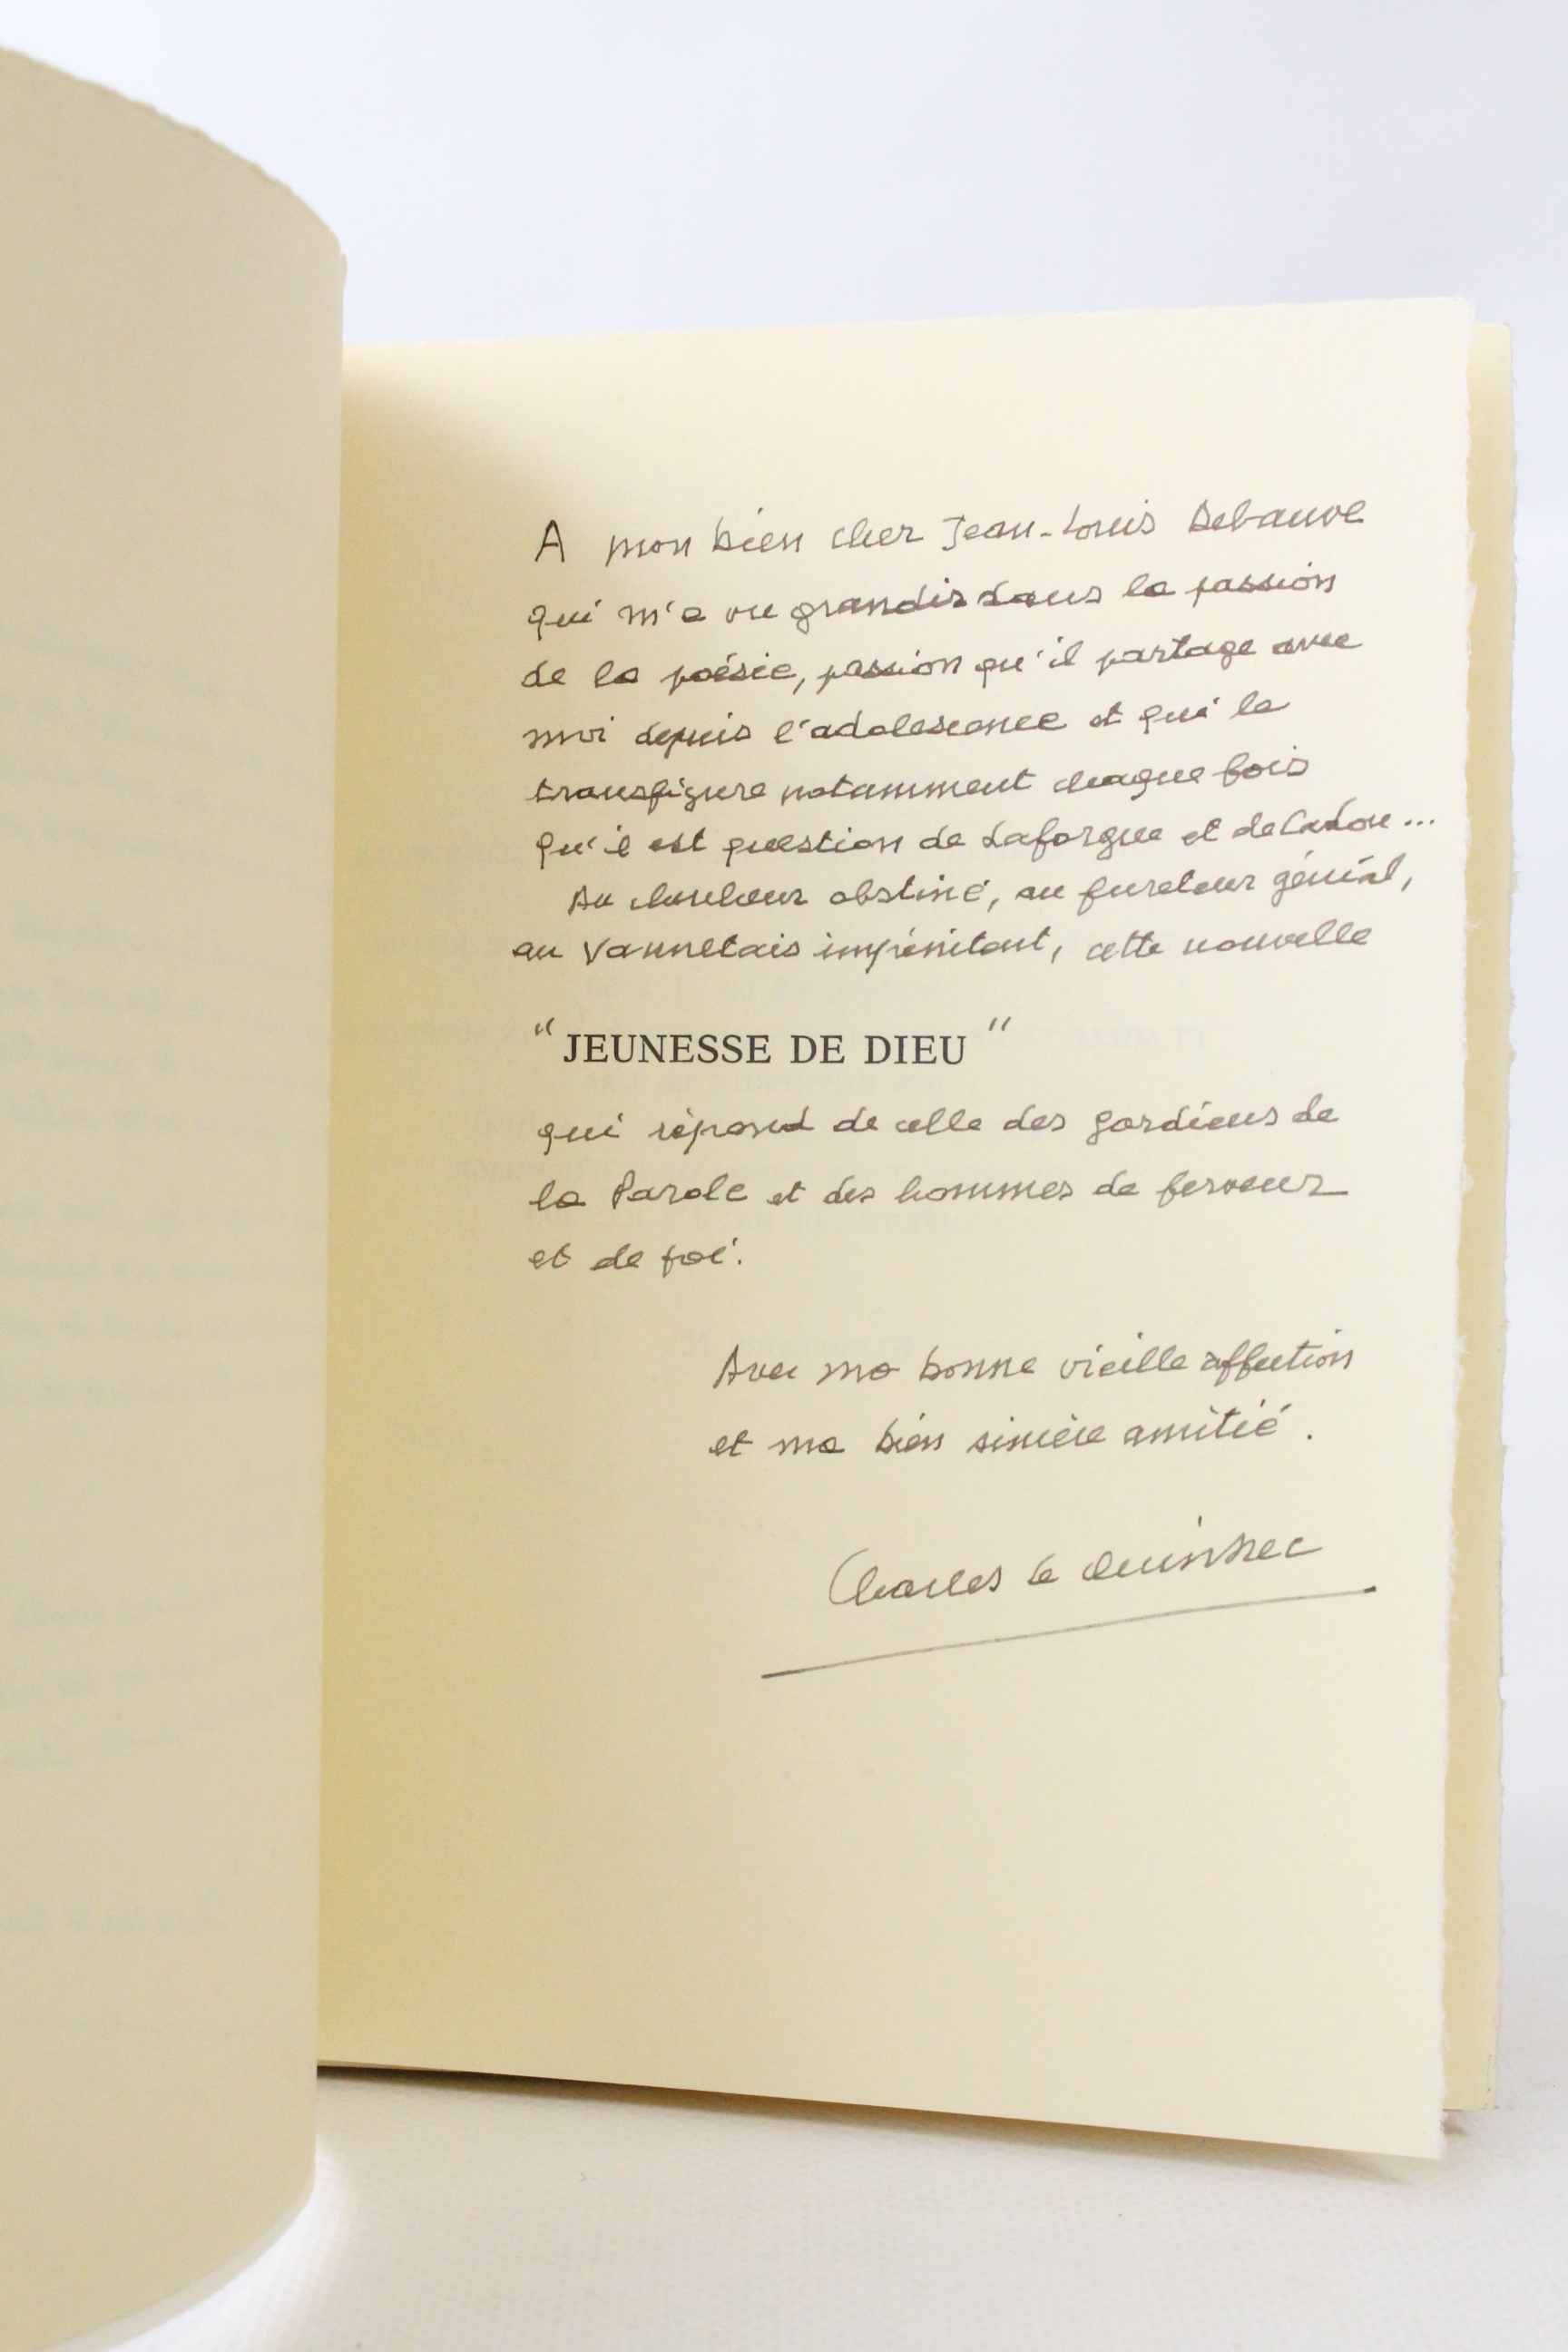 A mon bien cher Jean-Louis Debauve
qui m'a vu grandir dans la passion
de la poésie, passion qu'il partage avec
moi depuis l'adolescence et qui le
transfigure notamment chaque fois
qu'il est question de Laforgue et de Cadou...
Au chercheur obstiné, au fureteur génial,
au Vannetais impénitent, cette nouvelle
"JEUNESSE DE DIEU"
qui répond de celle des gardiens de
la Parole et des hommes de ferveur
et de foi.
Avec ma bonne vieille affection
et ma bien sincère amitié.
Charles le Quintrec